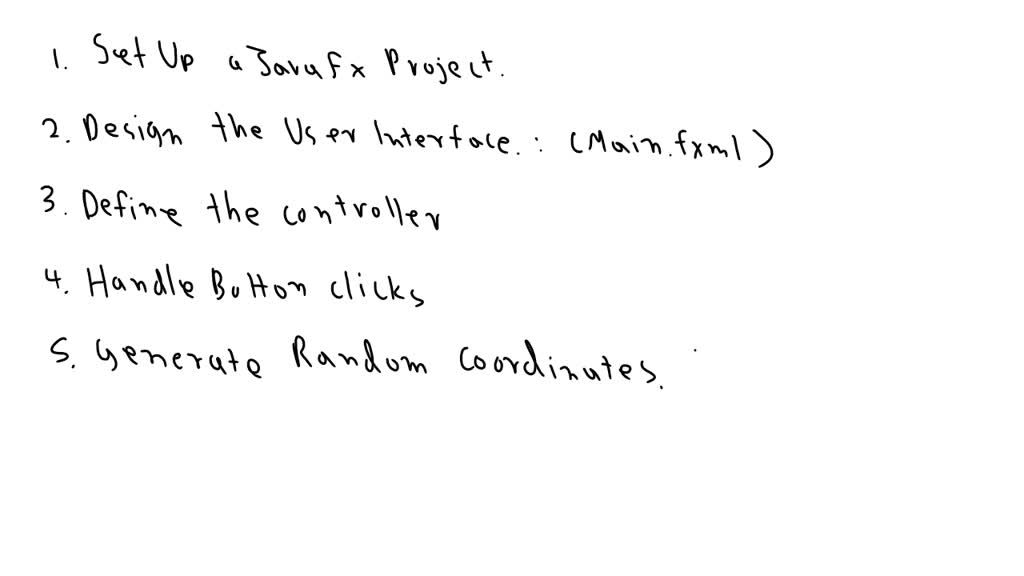 1. Set Up a JavaFx Project.
2. Design the User Interface. : (Main.fxml)
3. Define the controller
4. Handle Button clicks
5. Generate Random Coordinates.